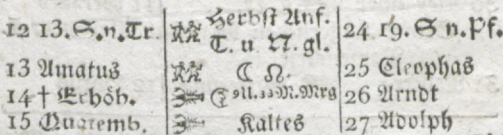 12 13. S. n. Tr. Herbst Anf. T. u N. gl. 24 19. S n. Pf.
13 Amatus ☾ ☊. 25 Cleophas
14 † Erhöh. 9 U. 33 M. Mrg 26 Arndt
15 Quatemb. Kaltes 27 Adolph